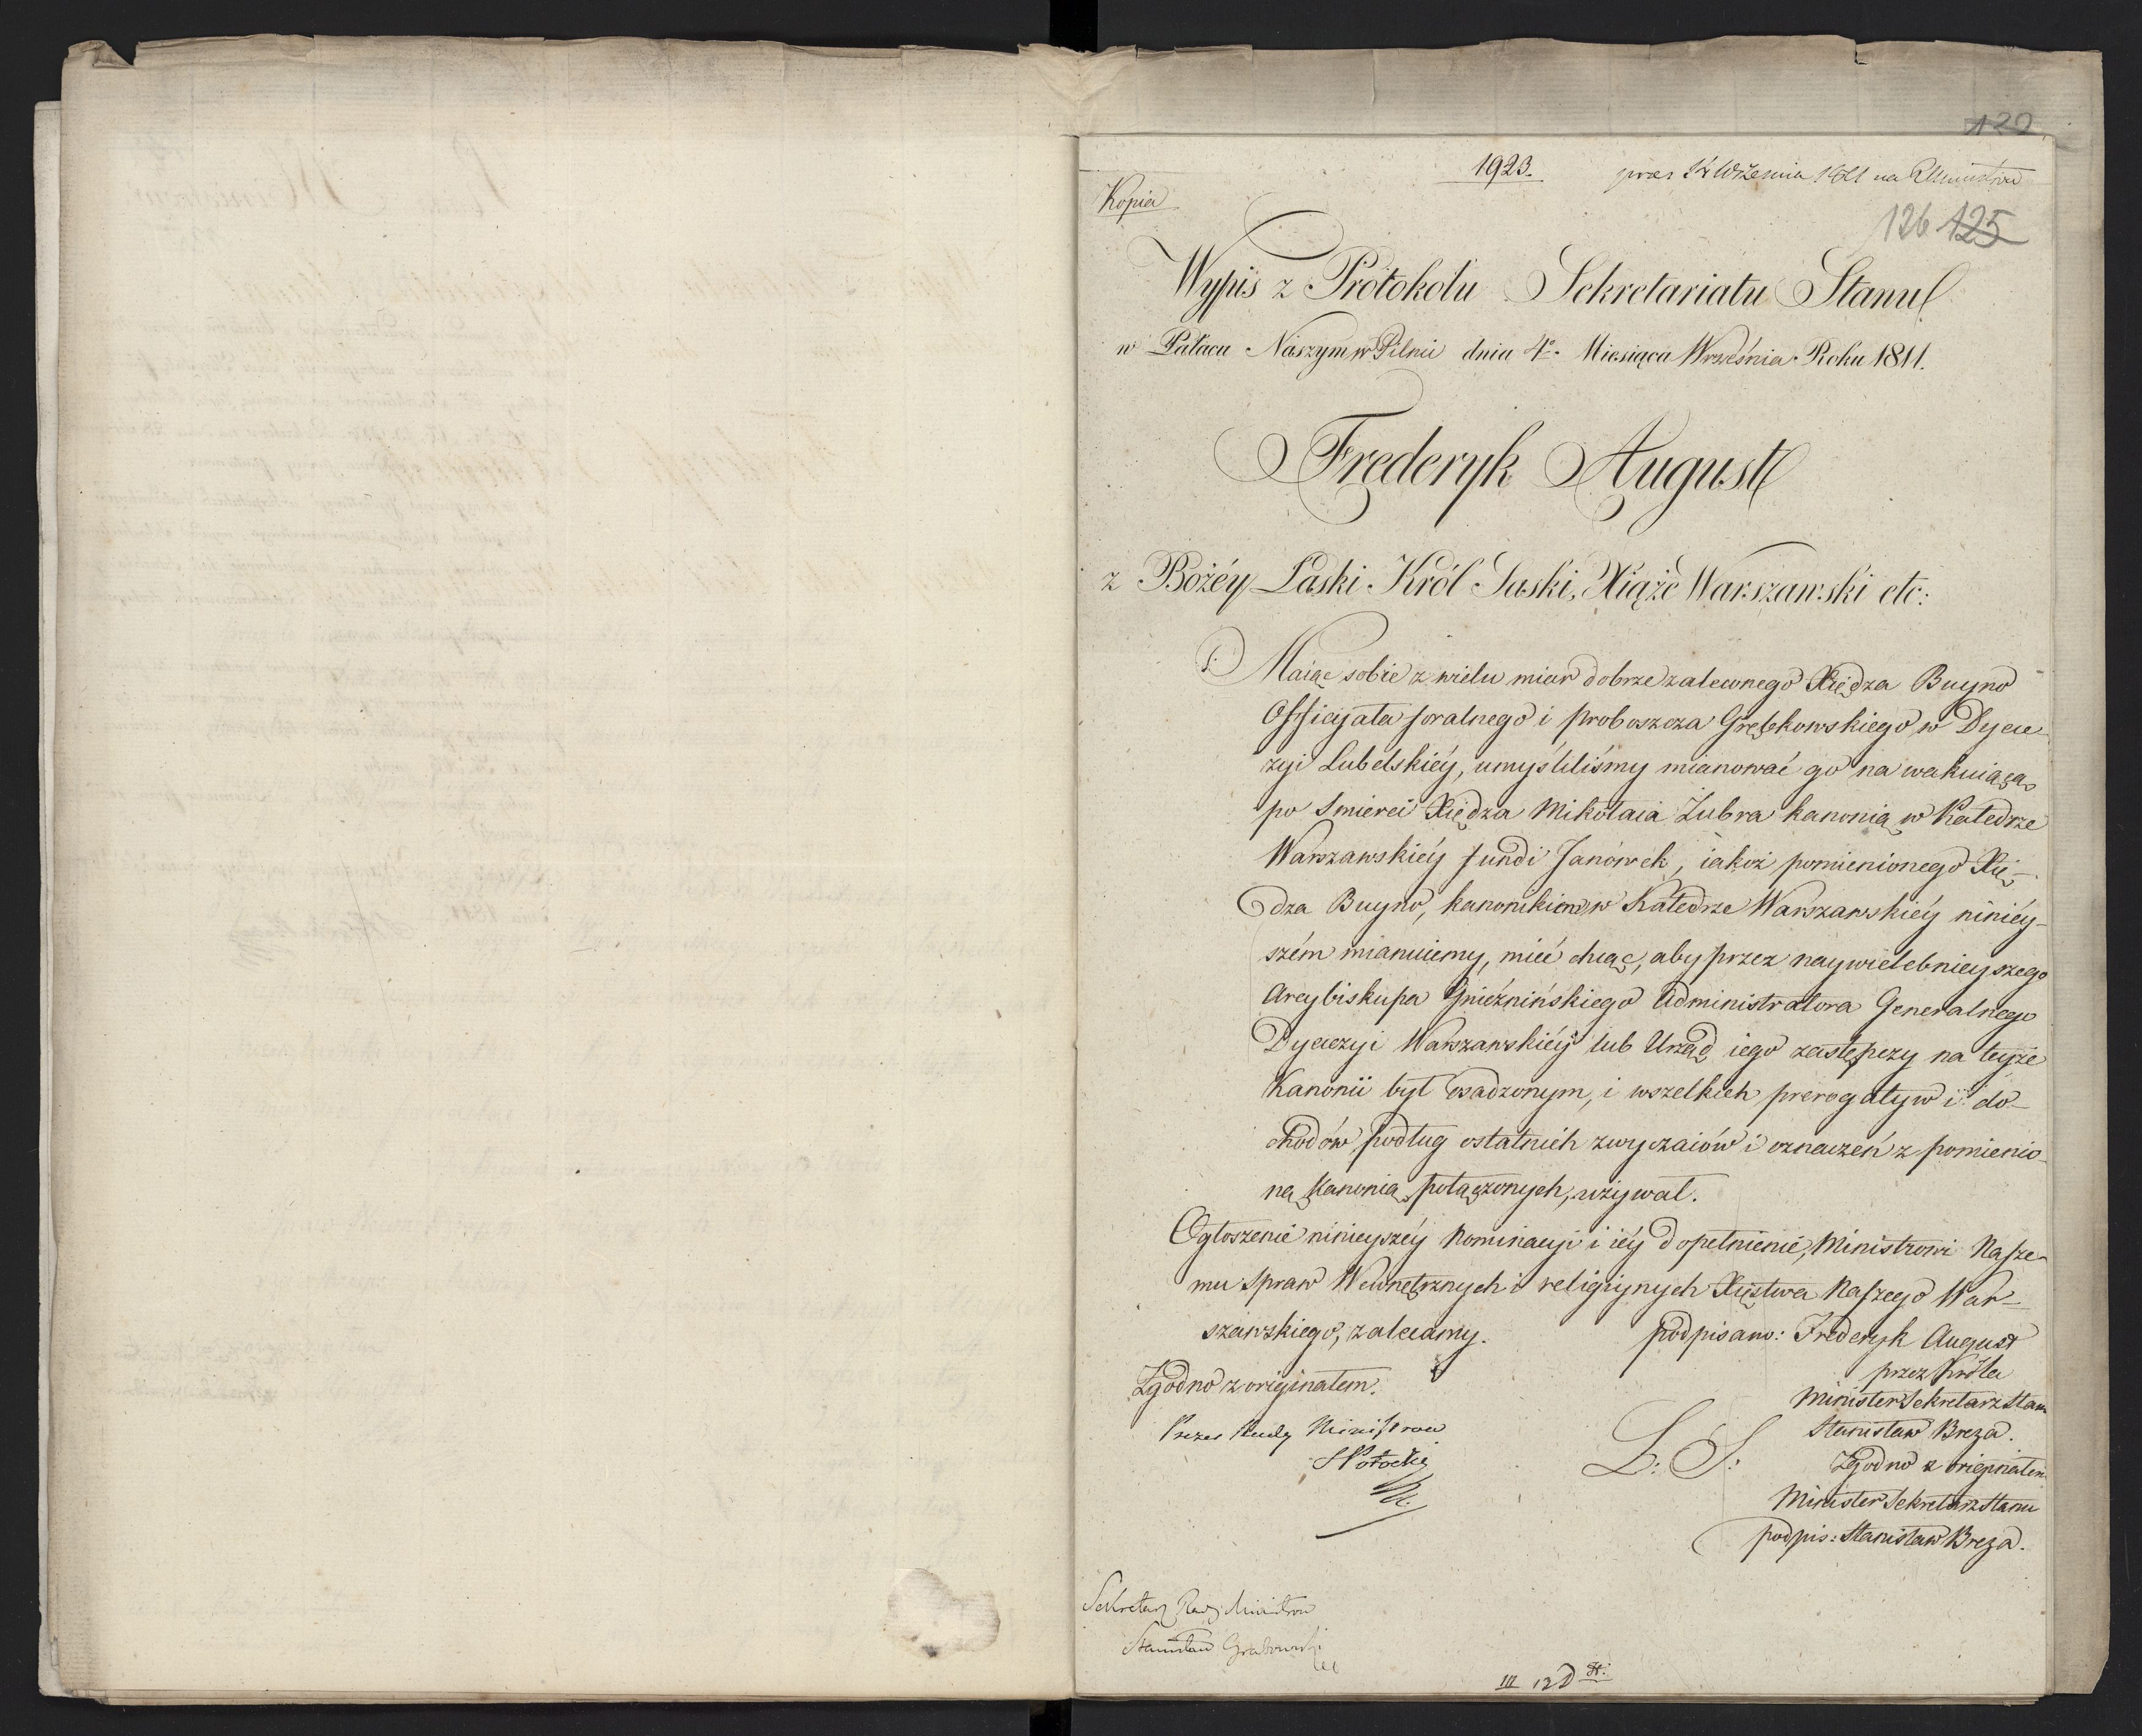 120
1923. præs 14 Wrzesnia 1811 na R Ministrów
Kopia
126 125
Wypis z Protokołu Sekretariatu Stanu
w Pałacu Naszym w Pilnic dnia 4º. Miesiąca Września Roku 1811.
Frederyk August
z Bożéy Łaski Król Saski, Xiąże Warszawski etc:
Maiąc sobie z wielu miar dobrze zaleconego Xiędza Buyno
Officyała foralnego i proboszcza Grębkowskiego w Dyece-
zyi Lubelskiéy, umyśliliśmy mianować go na wakuiącą
po Smierci Xiędza Mikołaia Żubra kanonią w Katedrze
Warszawskiéy fundi Janówek, iakoż pomienionego Xię-
dza Buyno, kanonikiem w Katedrze Warszawskiéy niniéy-
szém mianuiemy, mieć chcąc, aby przez naywielebnieyszego
Arcybiskupa Gnieźnińskiego Administratora Generalnego
Dyecezyi Warszawskiéy lub Urząd iego zastępczy na teyże
Kanonii był osadzonym, i wszelkich prerogatyw i do-
chodów podług ostatnich zwyczaiów i oznaczeń z pomienio-
ną Kanonią połączonych, używał.
Ogłoszenie ninieyszéy Nominacyi i iéy dopełnienie, Ministrowi Nasze-
mu Spraw Wewnętrznych i religiynych Xięstwa Naszego War-
szawskiego, zalecamy. podpisano: Frederyk August
przez Króla
Minister Sekretarz Stanu
Stanisław Breza.
Zgodno z originałem.
Prezes Rady Ministrow
S Potocki
L: S:
Zgodno z originałem
Minister Sekretarz Stanu
podpis: Stanisław Breza.
Sekretarz Rady Ministrow
Stanisław Grabowski
III 12D